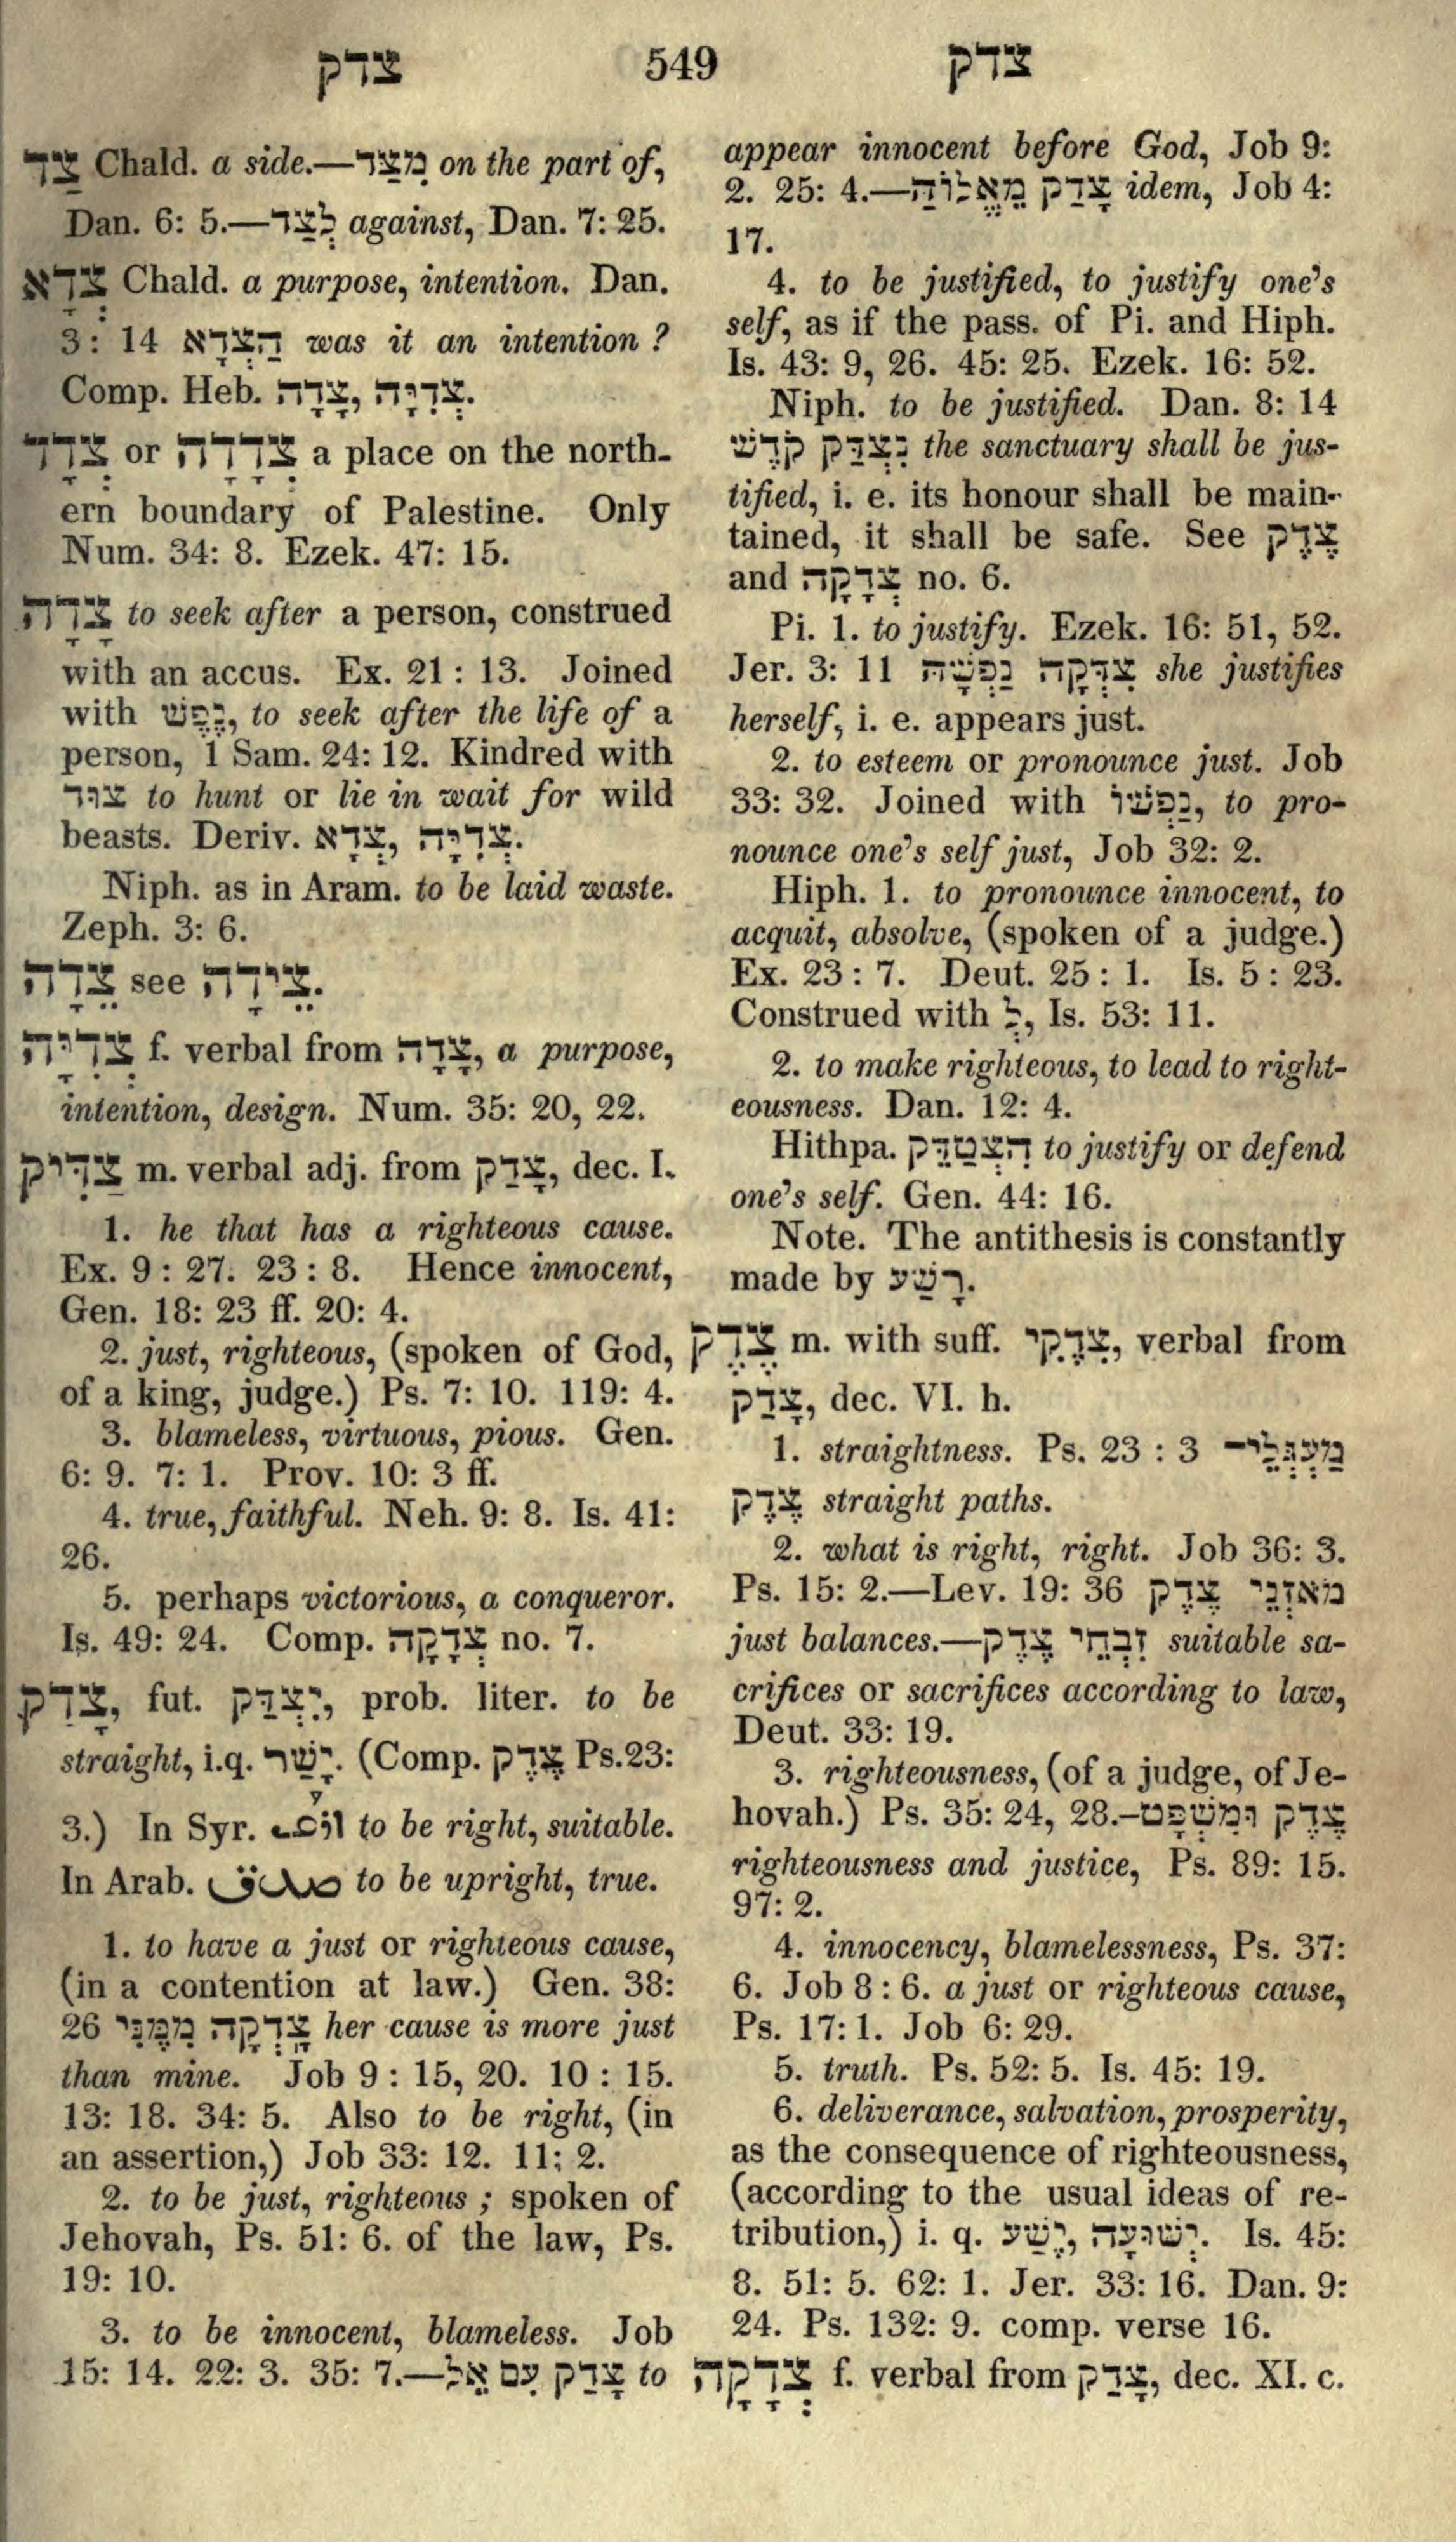 צדק 549 צדק
צַד Chald. a side.—מִצַּד on the part of,
Dan. 6: 5.—לְצַד against, Dan. 7: 25.
צְדָא Chald. a purpose, intention. Dan.
3: 14 הַצְדָא was it an intention ?
Comp. Heb. צָדָה, צְדִיָּה.
צְדָד or צְדָדָה a place on the north-
ern boundary of Palestine. Only
Num. 34: 8. Ezek. 47: 15.
צָדָה to seek after a person, construed
with an accus. Ex. 21: 13. Joined
with נֶפֶשׁ, to seek after the life of a
person, 1 Sam. 24: 12. Kindred with
צוּד to hunt or lie in wait for wild
beasts. Deriv. צְדָא, צְדִיָּה.
Niph. as in Aram. to be laid waste.
Zeph. 3: 6.
צֵדָה see צֵידָה.
צְדִיָּה f. verbal from צָדָה, a purpose,
intention, design. Num. 35: 20, 22.
צַדִּיק m. verbal adj. from צָדַק, dec. I.
1. he that has a righteous cause.
Ex. 9: 27. 23: 8. Hence innocent,
Gen. 18: 23 ff. 20: 4.
2. just, righteous, (spoken of God,
of a king, judge.) Ps. 7: 10. 119: 4.
3. blameless, virtuous, pious. Gen.
6: 9. 7: 1. Prov. 10: 3 ff.
4. true, faithful. Neh. 9: 8. Is. 41:
26.
5. perhaps victorious, a conqueror.
Is. 49: 24. Comp. צְדָקָה no. 7.
צָדַק, fut. יִצְדַּק, prob. liter. to be
straight, i.q. יָשַׁר. (Comp. צֶדֶק Ps.23:
3.) In Syr. to be right, suitable.
In Arab. صدق to be upright, true.
1. to have a just or righteous cause,
(in a contention at law.) Gen. 38:
26 צָדְקָה מִמֶּנִּי her cause is more just
than mine. Job 9: 15, 20. 10: 15.
13: 18. 34: 5. Also to be right, (in
an assertion,) Job 33: 12. 11: 2.
2. to be just, righteous ; spoken of
Jehovah, Ps. 51: 6. of the law, Ps.
19: 10.
3. to be innocent, blameless. Job
15: 14. 22: 3. 35: 7.—צָדַק עִם אֵל to
appear innocent before God, Job 9:
2. 25: 4.—צָדַק מֵאֱלוֹהַּ idem, Job 4:
17.
4. to be justified, to justify one's
self, as if the pass. of Pi. and Hiph.
Is. 43: 9, 26. 45: 25. Ezek. 16: 52.
Niph. to be justified. Dan. 8: 14
נִצְדַּק קֹדֶשׁ the sanctuary shall be jus-
tified, i. e. its honour shall be main-
tained, it shall be safe. See צֶדֶק
and צְדָקָה no. 6.
Pi. 1. to justify. Ezek. 16: 51, 52.
Jer. 3: 11 צִדְּקָה נַפְשָׁהּ she justifies
herself, i. e. appears just.
2. to esteem or pronounce just. Job
33: 32. Joined with נַפְשׁוֹ, to pro-
nounce one's self just, Job 32: 2.
Hiph. 1. to pronounce innocent, to
acquit, absolve, (spoken of a judge.)
Ex. 23: 7. Deut. 25: 1. Is. 5: 23.
Construed with לְ, Is. 53: 11.
2. to make righteous, to lead to right-
eousness. Dan. 12: 4.
Hithpa. הִצְטַדֵּק to justify or defend
one's self. Gen. 44: 16.
Note. The antithesis is constantly
made by רָשַׁע.
צֶדֶק m. with suff. צִדְקִי, verbal from
צָדַק, dec. VI. h.
1. straightness. Ps. 23: 3 מַעְגְּלֵי־
צֶדֶק straight paths.
2. what is right, right. Job 36: 3.
Ps. 15: 2.—Lev. 19: 36 מֹאזְנֵי צֶדֶק
just balances.—זִבְחֵי צֶדֶק suitable sa-
crifices or sacrifices according to law,
Deut. 33: 19.
3. righteousness, (of a judge, of Je-
hovah.) Ps. 35: 24, 28.—צֶדֶק וּמִשְׁפָּט
righteousness and justice, Ps. 89: 15.
97: 2.
4. innocency, blamelessness, Ps. 37:
6. Job 8: 6. a just or righteous cause,
Ps. 17: 1. Job 6: 29.
5. truth. Ps. 52: 5. Is. 45: 19.
6. deliverance, salvation, prosperity,
as the consequence of righteousness,
(according to the usual ideas of re-
tribution,) i. q. יֶשַׁע, יְשׁוּעָה. Is. 45:
8. 51: 5. 62: 1. Jer. 33: 16. Dan. 9:
24. Ps. 132: 9. comp. verse 16.
צְדָקָה f. verbal from צָדַק, dec. XI. c.